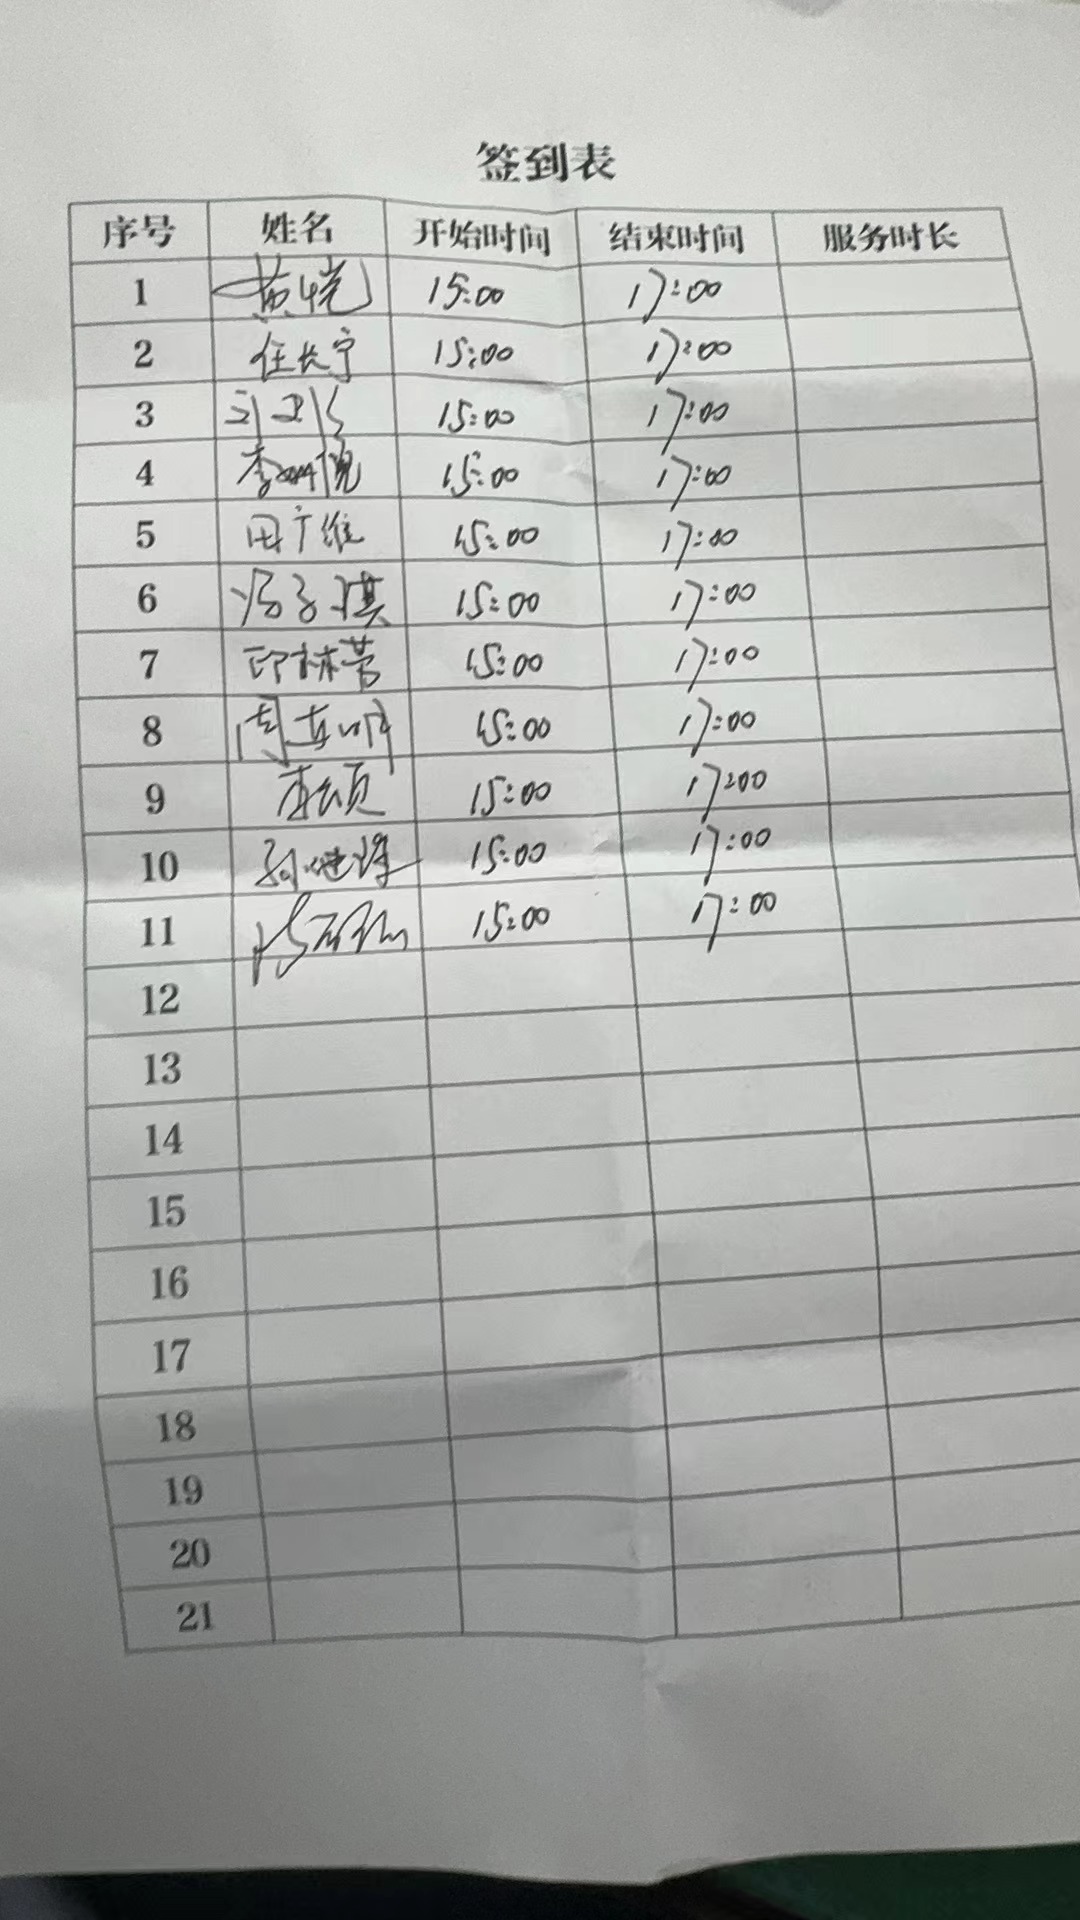 签到表
序号 姓名 开始时间 结束时间 服务时长
1 黄恺 15:00 17:00
2 任长宁 15:00 17:00
3 15:00 17:00
4 李 15:00 17:00
5 田广维 15:00 17:00
6 子琪 15:00 17:00
7 印林芳 15:00 17:00
8 周 15:00 17:00
9 李颂 15:00 17:00
10 孙 15:00 17:00
11 15:00 17:00
12
13
14
15
16
17
18
19
20
21